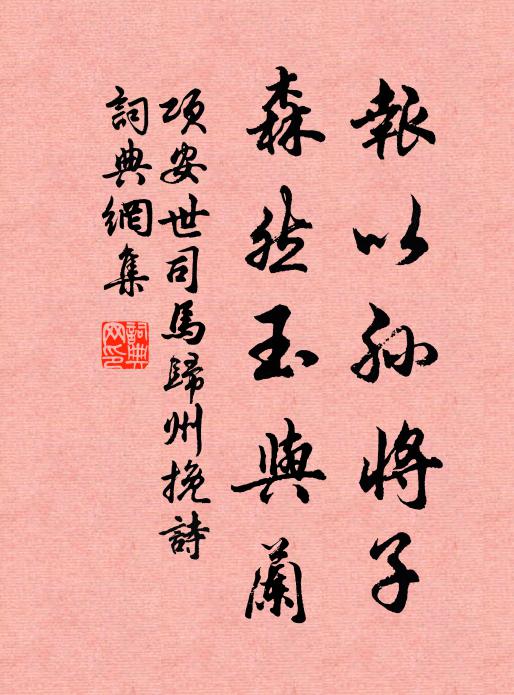 報以孫將子
森然玉與蘭
項安世司馬歸州挽詩
詞典網集
詞典網印